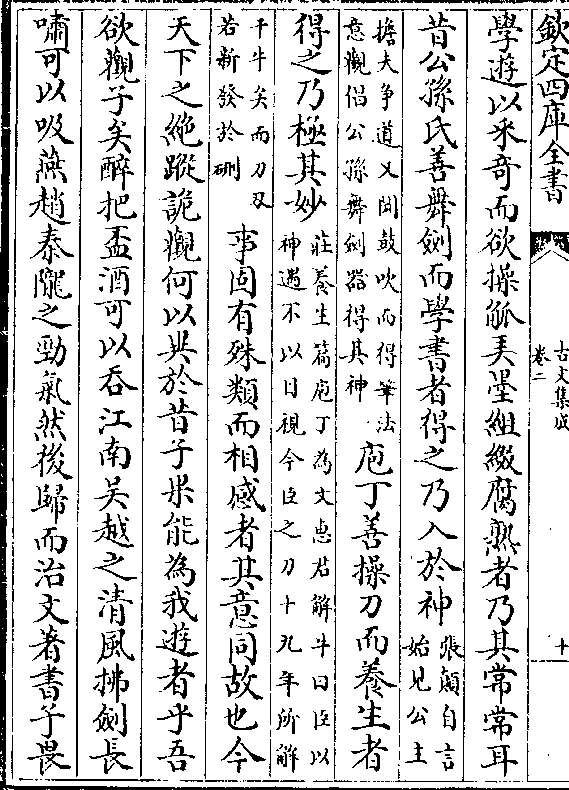 欽定四庫全書
古文集成
卷二
十
學遊以采奇而欲操觚弄墨組綴腐熟者乃其常常耳
昔公孫氏善舞劍而學書者得之乃入於神張顛自言始見公主
擔夫争道又聞鼓吹而得筆法意觀倡公孫舞劍器得其神庖丁善操刀而養生者
得之乃極其妙莊養生篇庖丁為文惠君解牛曰臣以神遇不以目視今臣之刀十九年所解
千牛矣而刀刃若新發於硎事固有殊類而相感者其意同故也今
天下之絶蹤詭觀何以異於昔子果能為我遊者乎吾
欲觀子矣醉把盃酒可以吞江南吴越之清風拂劍長
嘯可以吸燕趙秦隴之勁氣然後歸而治文著書子畏